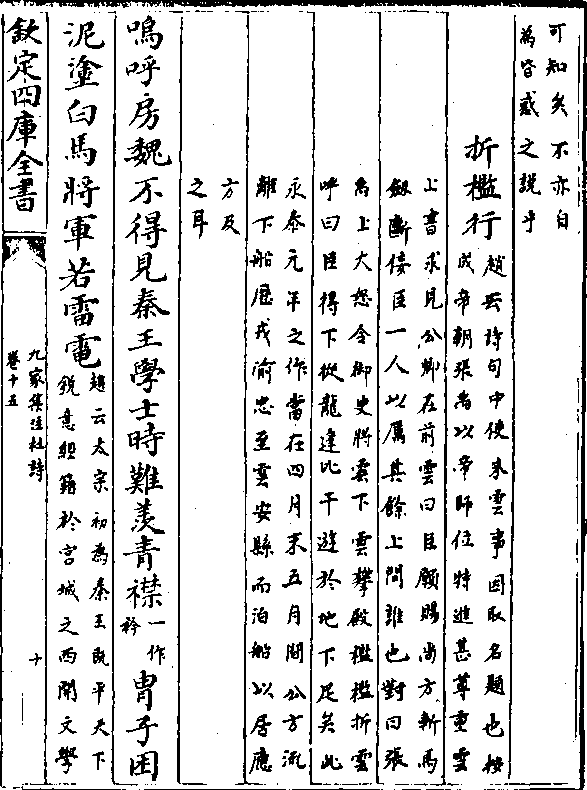 可知矣不亦自
為皆惑之說乎
折檻行
趙云詩句中使朱雲事因取名題也按
成帝朝張禹以帝師位特進甚尊重雲
上書求見公卿在前雲曰臣願賜尚方斬馬
劔斷佞臣一人以厲其餘上問誰也對曰張
禹上大怒令御史將雲下雲攀殿檻檻折雲
呼曰臣得下從龍逄比干遊於地下足矣此
永泰元年之作當在四月末五月間公方流
離下船歷戎渝忠至雲安縣而泊船以居應
方及
之耳
嗚呼房魏不得見秦王學士時難羡青襟一作衿胄子困
泥塗白馬將軍若雷電
趙云太宗初為秦王既平天下
銳意經籍於宫城之西開文學
欽定四庫全書
九家集注杜詩
卷十五
十